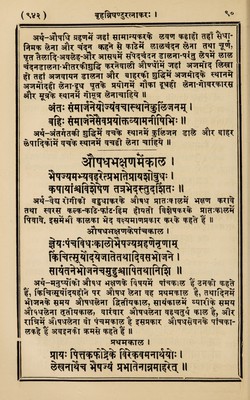 (१४२) बृहन्निघण्टुरत्नाकरः। ९०
अर्थ-औषधि ग्रहणमें जहां सामान्यकरके लवण कहाही तहां सैंधा-
निमक लेना और चंदन कहने से काढेमें लालचंदन लेना तथा चूर्ण,
घृत तैलादि-अवलेह-और आसवमें सपेदचंदन डालना-परंतु लेपमें लाल
चंदनडालना-भीतरकीशुद्धि करनेवाली औषधोंमें जहां अजमोद लिखा
हो तहां अजवायन डालना और बाहरकी शुद्धिमें अजमोदकेस्थानमें
अजमोदहीलेना-दूध घृतके प्रयोगमें गौका दूधही लेना-गोबरकारस
और मूत्रके स्थानमें गौकामूत्र लेनाचाहिये॥
अंतःसंमार्जनेयोज्यंवचास्थानेकुलिंजनम्।
बहिः संमार्जनेसैवप्रयोक्तव्यामनीषिभिः॥
अर्थ-अंतर्गतकी शुद्धिमें वचके स्थानमें कुलिंजन डाले और बाहर
लेपादिकोंमें वचके स्थानमें वचही देनाचाहिये॥
औषधभक्षणमेंकाल।
भैषज्यमभ्यवहरेत्प्रभातेप्रायशोबुधः।
कषायांश्चविशेषेण तत्रभेदस्तुदर्शितः॥
अर्थ-वैद्य रोगीको बहुधाकरके औषध प्रातःकाल भक्षण करावे
तथा स्वरस कल्क-काढे-फांट-हिम इत्यतो विशेषकरके प्रातःकालमें
पिवावे, इसमेंभी कालका भेद वक्ष्यमाणप्रकार करके कहतेहैं॥
औषधभक्षणकेपांचकाल।
ज्ञेयःपंचविधःकालोभैषज्यग्रहणेनृणाम्
किंचित्सूर्योदयेजातेतथादिवसभोजने।
सायंतनेभोजनेचमुहुश्चापितथानिशि॥
अर्थ-मनुष्योंको औषध भक्षणके विषयमें पांचकाल हैं उनको कहते
हैं, किंचित्सूर्योदयहोने पर औषध लेना वह प्रथमकाल है, तथादिनमें
भोजनके समय औषधलेना द्वितीयकाल, सायंकालमें ब्यारीके समय
औषधलेना तृतीयकाल, वारंवार औषधलेना वहचतुर्थ काल है, और
रात्रिमें औषधलेना वो पंचमकाल है इसप्रकार औषधसेवनके पांचका-
लकहे हैं अब इनको क्रमसे कहते हैं॥
प्रथमकाल।
प्रायः पित्तकफोद्रेके विरेकवमनार्थयोः।
लेखनार्थेच भैषज्यं प्रभातेनान्नमाहरेत्॥